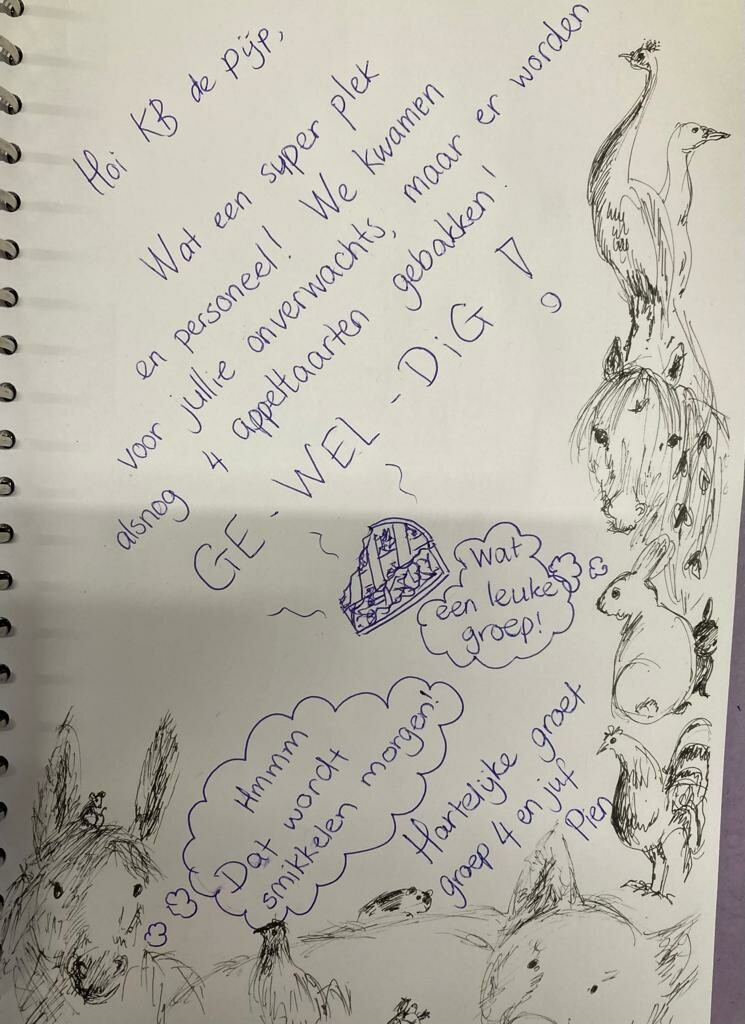 Hoi KB de Pijp,
Wat een super plek
en personeel! We kwamen
voor jullie onverwachts, maar er worden
alsnog 4 appeltaarten gebakken!
GE-WEL-DiG!
Wat
een leuke
groep!
Hmmm
Dat wordt
smikkelen morgen!
Hartelijke groet
groep 4 en juf
Pien